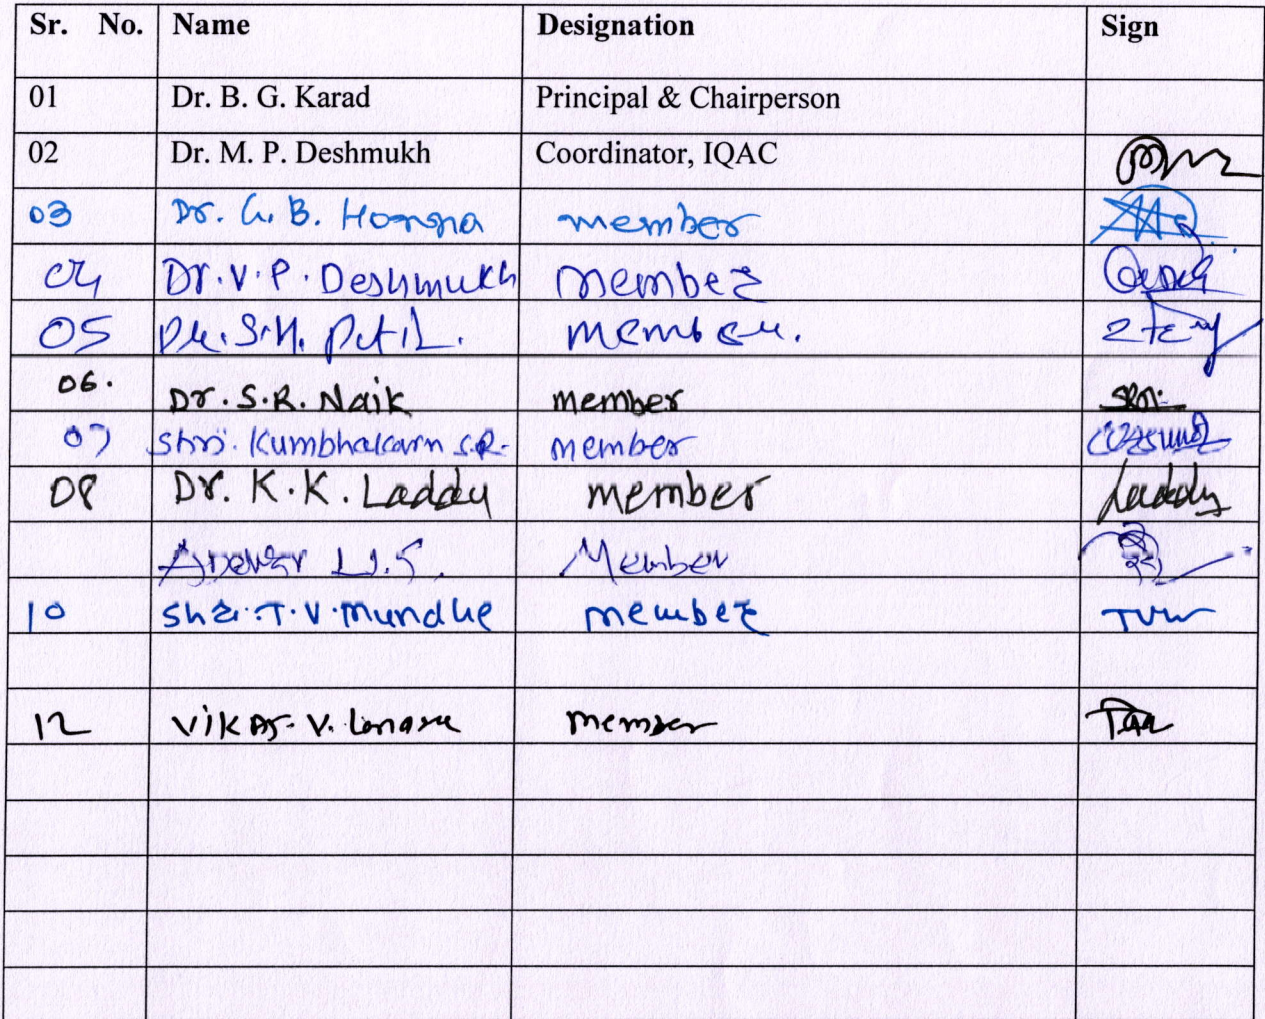 Sr. No. Name Designation Sign
01 Dr. B. G. Karad Principal & Chairperson
02 Dr. M. P. Deshmukh Coordinator, IQAC
03 Dr. G. B. Honna member
04 Dr. V. P. Deshmukh member
05 Dr. S. M. Patil. member.
06. Dr. S. R. Naik member SRN.
07 Shri. Kumbhakarn S.R. member
08 Dr. K. K. Laddu member Laddu
Member
10 Shri. T. V. Mundhe member TVM
12 Vikas. V. member